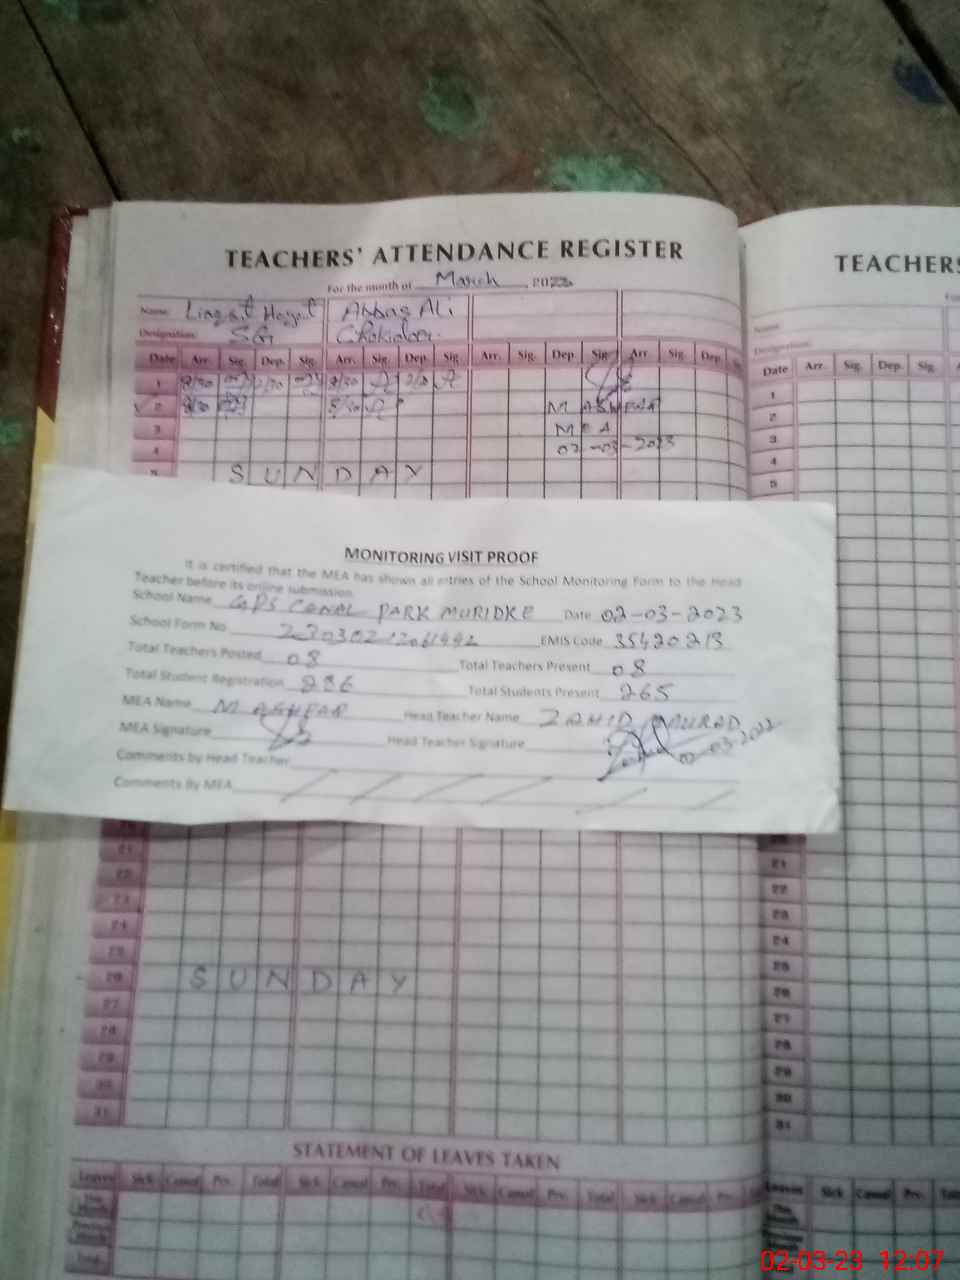 TEACHERS' ATTENDANCE REGISTER
For the month of March, 2023
Name Liaqat Hayat Abbas Ali
Designation SG Chokidar
Date Arr. Sig. Dep. Sig. Arr. Sig. Dep. Sig. Arr. Sig. Dep. Sig. Arr. Sig. Dep.
1 8/30 8/30
2 8/30 8/30 M ASHFAR
3 MEA
4 02-03-2023
5 SUNDAY
MONITORING VISIT PROOF
It is certified that the MEA has shown all entries of the School Monitoring Form to the Head
Teacher before its online submission.
School Name GPS CANAL PARK MURIDKE Date 02-03-2023
School Form No EMIS Code 35420213
Total Teachers Posted 08 Total Teachers Present 08
Total Student Registration 286 Total Students Present 265
MEA Name M ASHFAR Head Teacher Name ZAHID MURAD
MEA Signature Head Teacher Signature 02-03-2022
Comments by Head Teacher
Comments By MEA
21
22
23
24
25
26 SUNDAY
27
28
29
30
31
STATEMENT OF LEAVES TAKEN
Leaves Sick Casual Prv. Total Sick Casual Prv. Total Sick Casual Prv. Total Sick Casual Prv.
This Month
Previous
Total
TEACHERS
Name
Designation
Date Arr. Sig. Dep. Sig.
1
2
3
4
5
21
22
23
24
25
26
27
28
29
30
31
Leaves Sick Casual Prv.
02-03-23 12:07